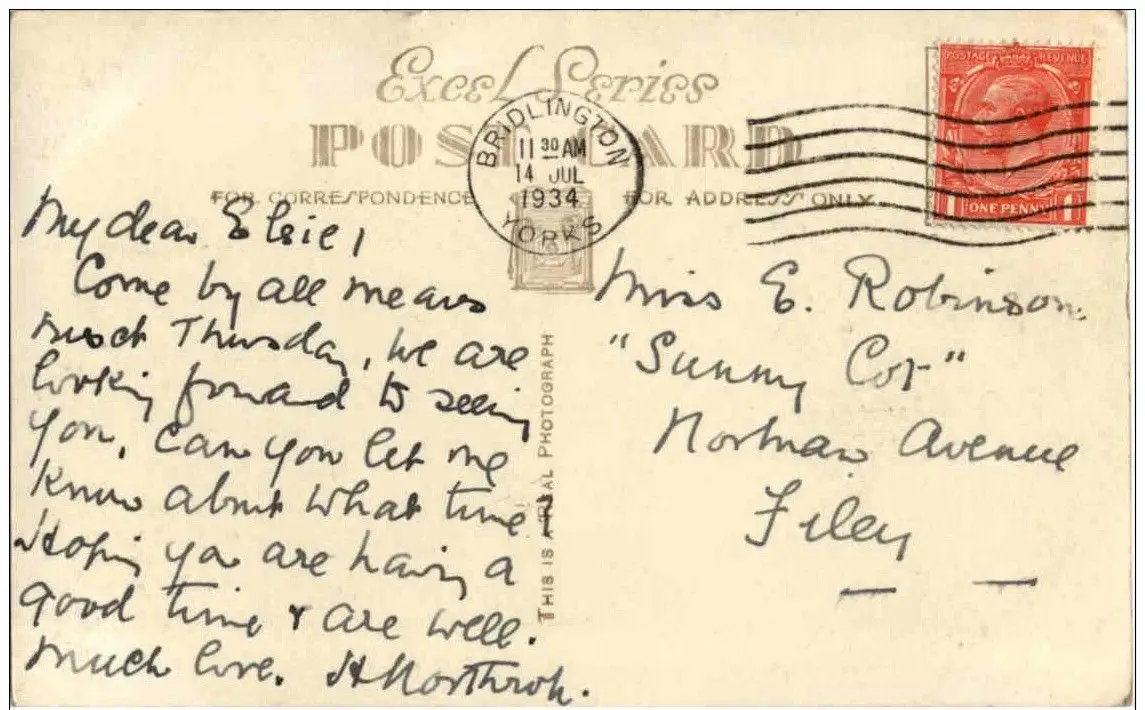 Excel Series
POST CARD
FOR CORRESPONDENCE
FOR ADDRESS ONLY
BRIDLINGTON
11 30 AM
14 JUL
1934
YORKS
POSTAGE REVENUE
1 ONE PENNY 1
THIS IS A REAL PHOTOGRAPH
My dear Elsie,
Come by all means
next Thursday, we are
looking forward to seeing
you, can you let me
know about what time?
Hoping you are having a
good time & are well.
Much love. H
Miss E. Robinson.
"Sunny Cot"
Avenue
Filey